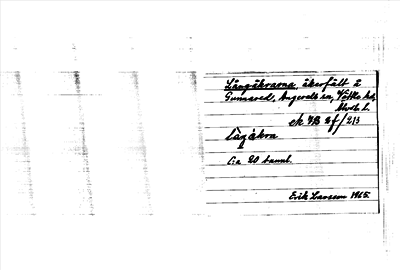 Långåkrarna, åkerfält å
Gunnared, Angereds sn, Vättle hd,
Älvsb. l.
ek 7B 2f/213
låŋåkra
Ca 20 tunnl.
Erik Larsson 1965.